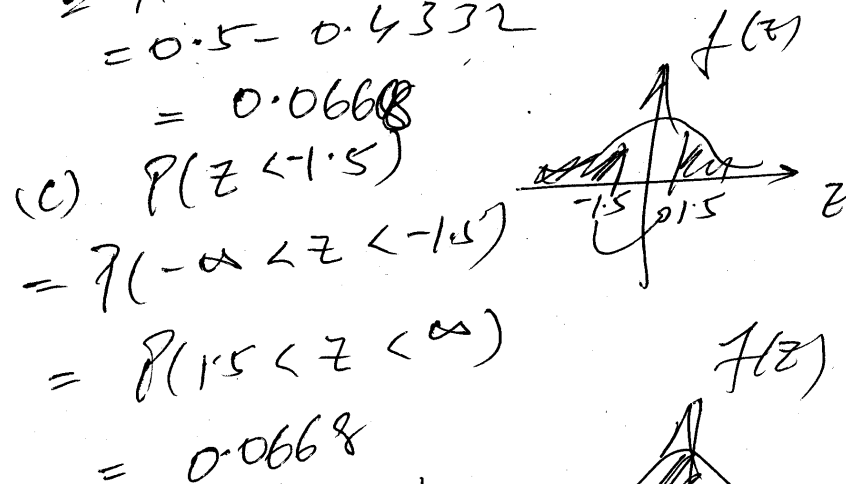 = 0.5 - 0.4332
= 0.0668
f(z)
(c) P(z < -1.5)
-1.5 0 1.5 z
= P(-∞ < z < -1.5)
= P(1.5 < z < ∞)
f(z)
= 0.0668